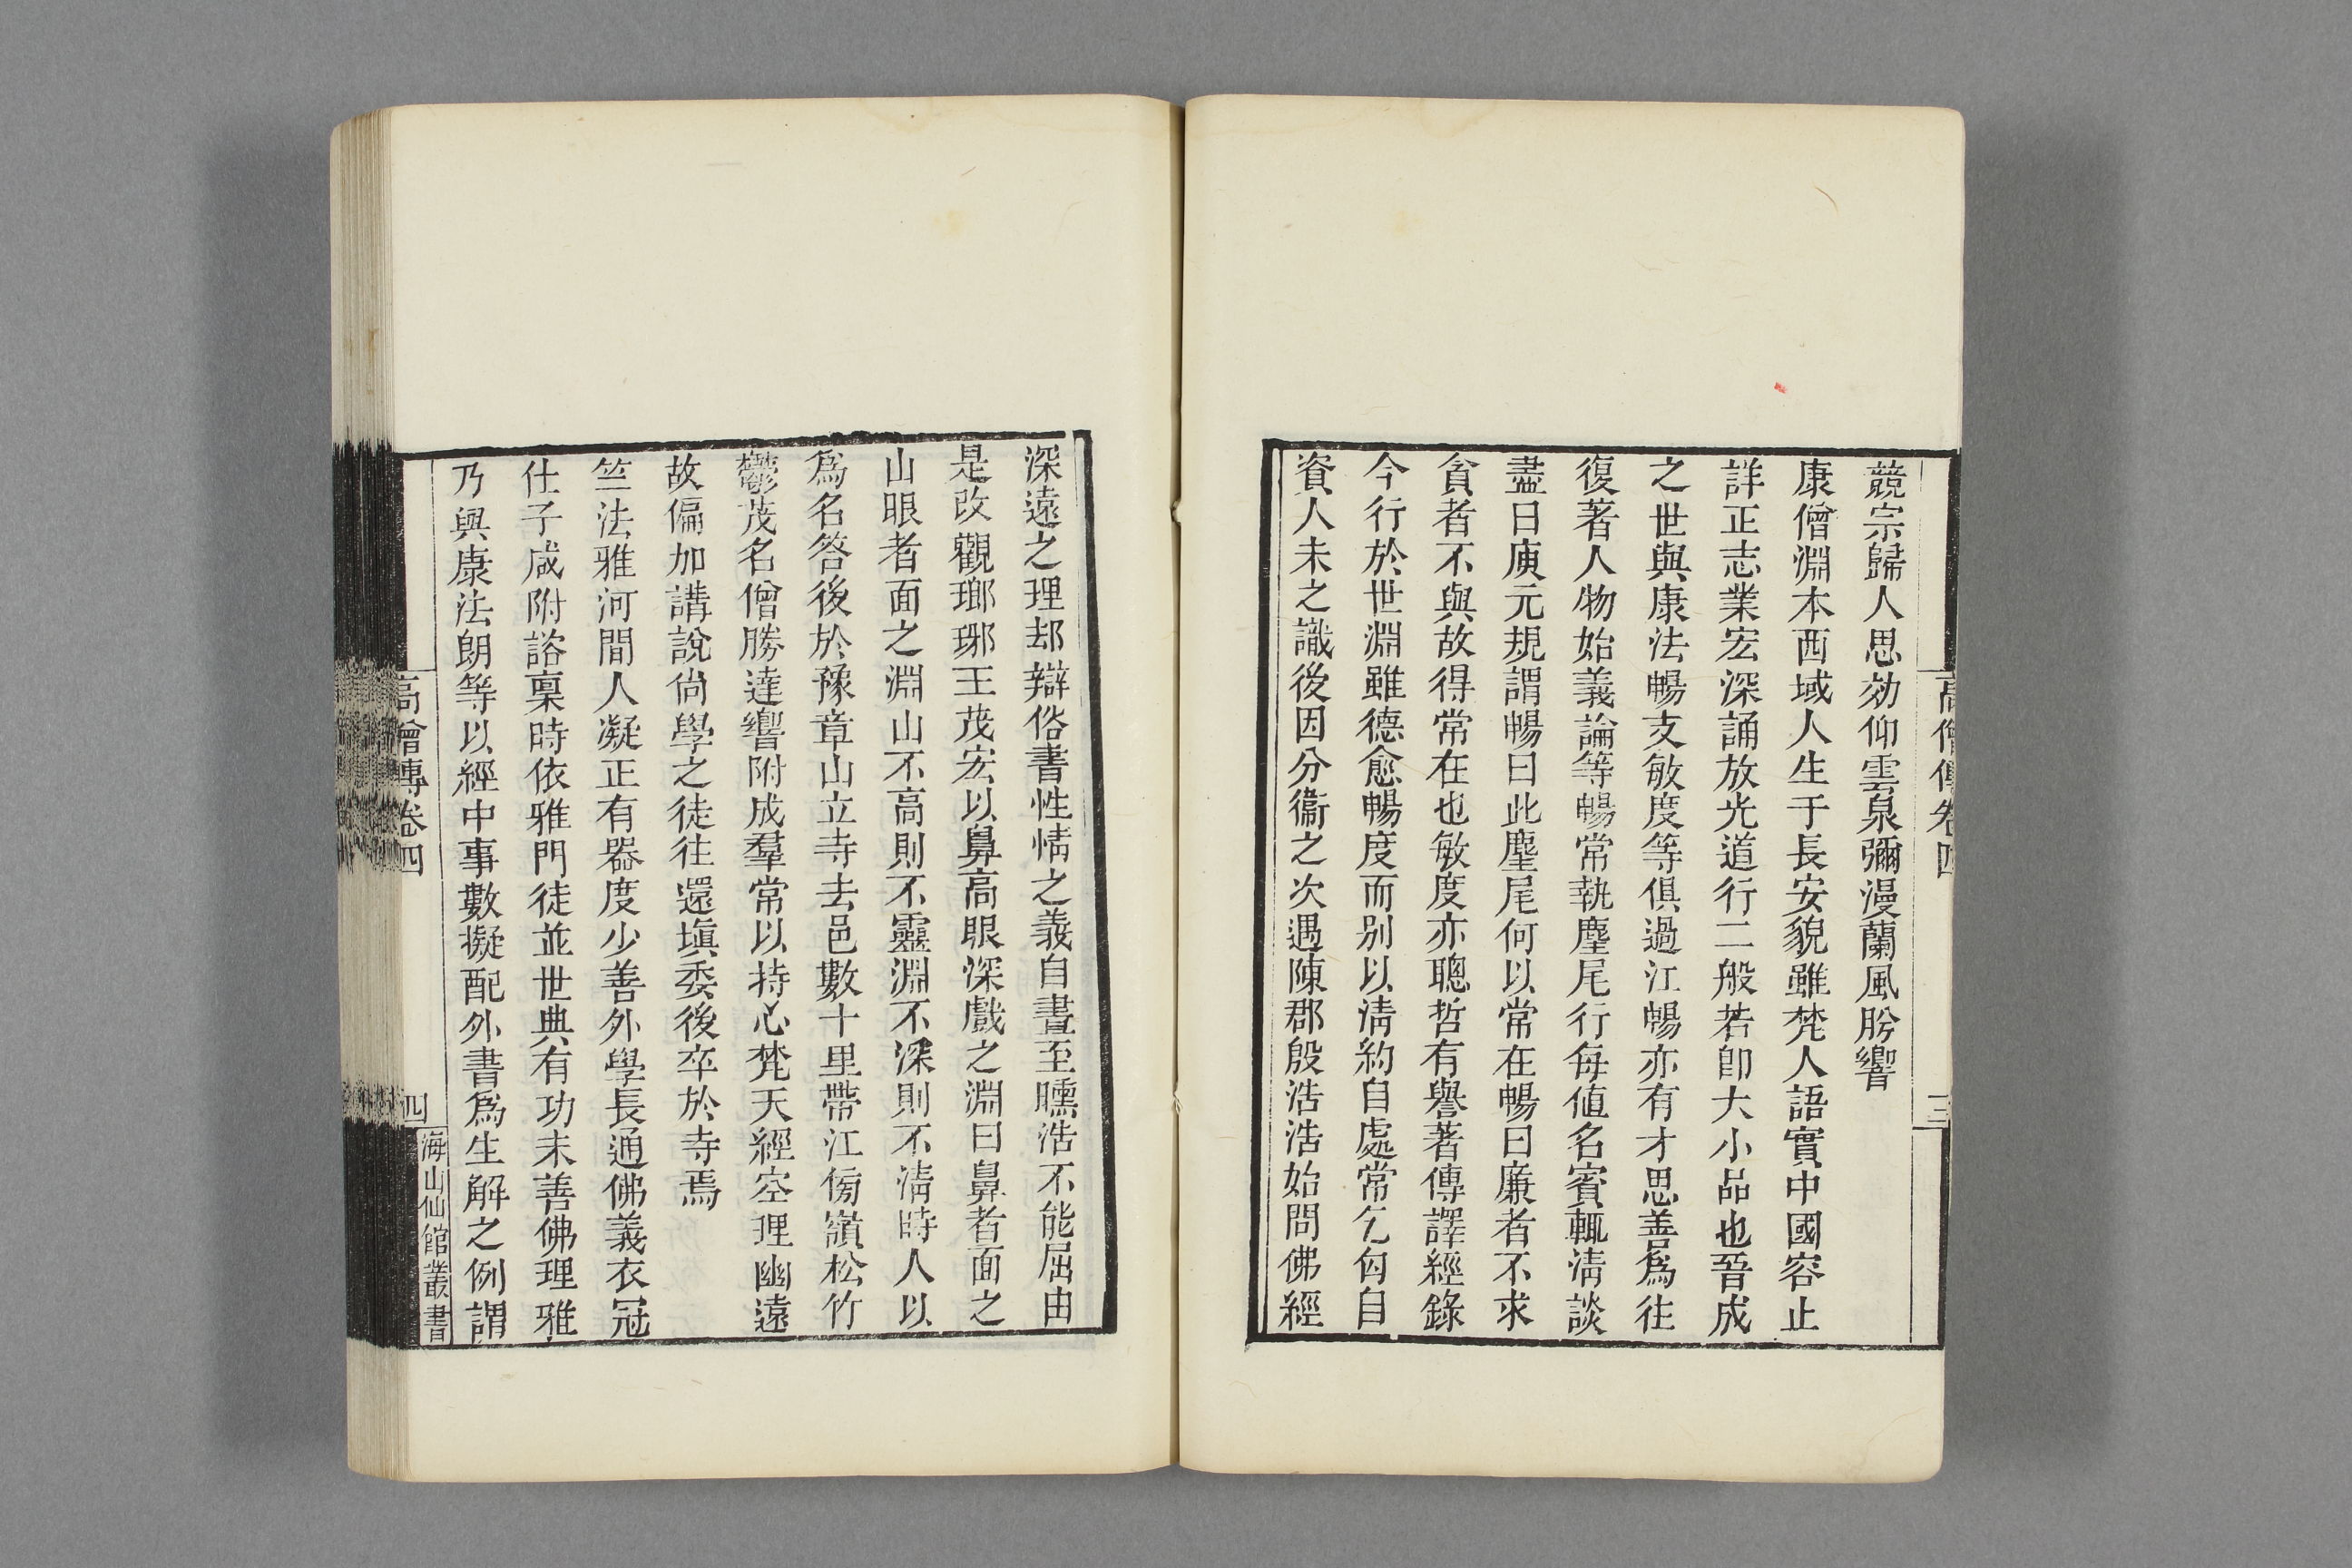 高僧傳卷四
三
競宗歸人思効仰雲泉彌漫蘭風肹響
康僧淵本西域人生于長安貌雖梵人語實中國容止
詳正志業宏深誦放光道行二般若卽大小品也晉成
之世與康法暢支敏度等俱過江暢亦有才思善爲往
復著人物始義論等暢常執麈尾行每值名賓輒淸談
盡日庾元規謂暢曰此麈尾何以常在暢曰廉者不求
貪者不與故得常在也敏度亦聰哲有譽著傳譯經錄
今行於世淵雖德愈暢度而别以淸約自處常乞匃自
資人未之識後因分衞之次遇陳郡殷浩浩始問佛經
深遠之理却辯俗書性情之義自晝至曛浩不能屈由
是改觀瑯琊王茂宏以鼻高眼深戲之淵曰鼻者面之
山眼者面之淵山不高則不靈淵不深則不淸時人以
爲名答後於豫章山立寺去邑數十里帶江傍嶺松竹
鬱茂名僧勝達響附成羣常以持心梵天經空理幽遠
故偏加講說尙學之徒往還塡委後卒於寺焉
竺法雅河間人凝正有器度少善外學長通佛義衣冠
仕子咸附諮稟時依雅門徒並世典有功未善佛理雅
乃與康法朗等以經中事數擬配外書爲生解之例謂
高僧傳卷四
四
海山仙館叢書